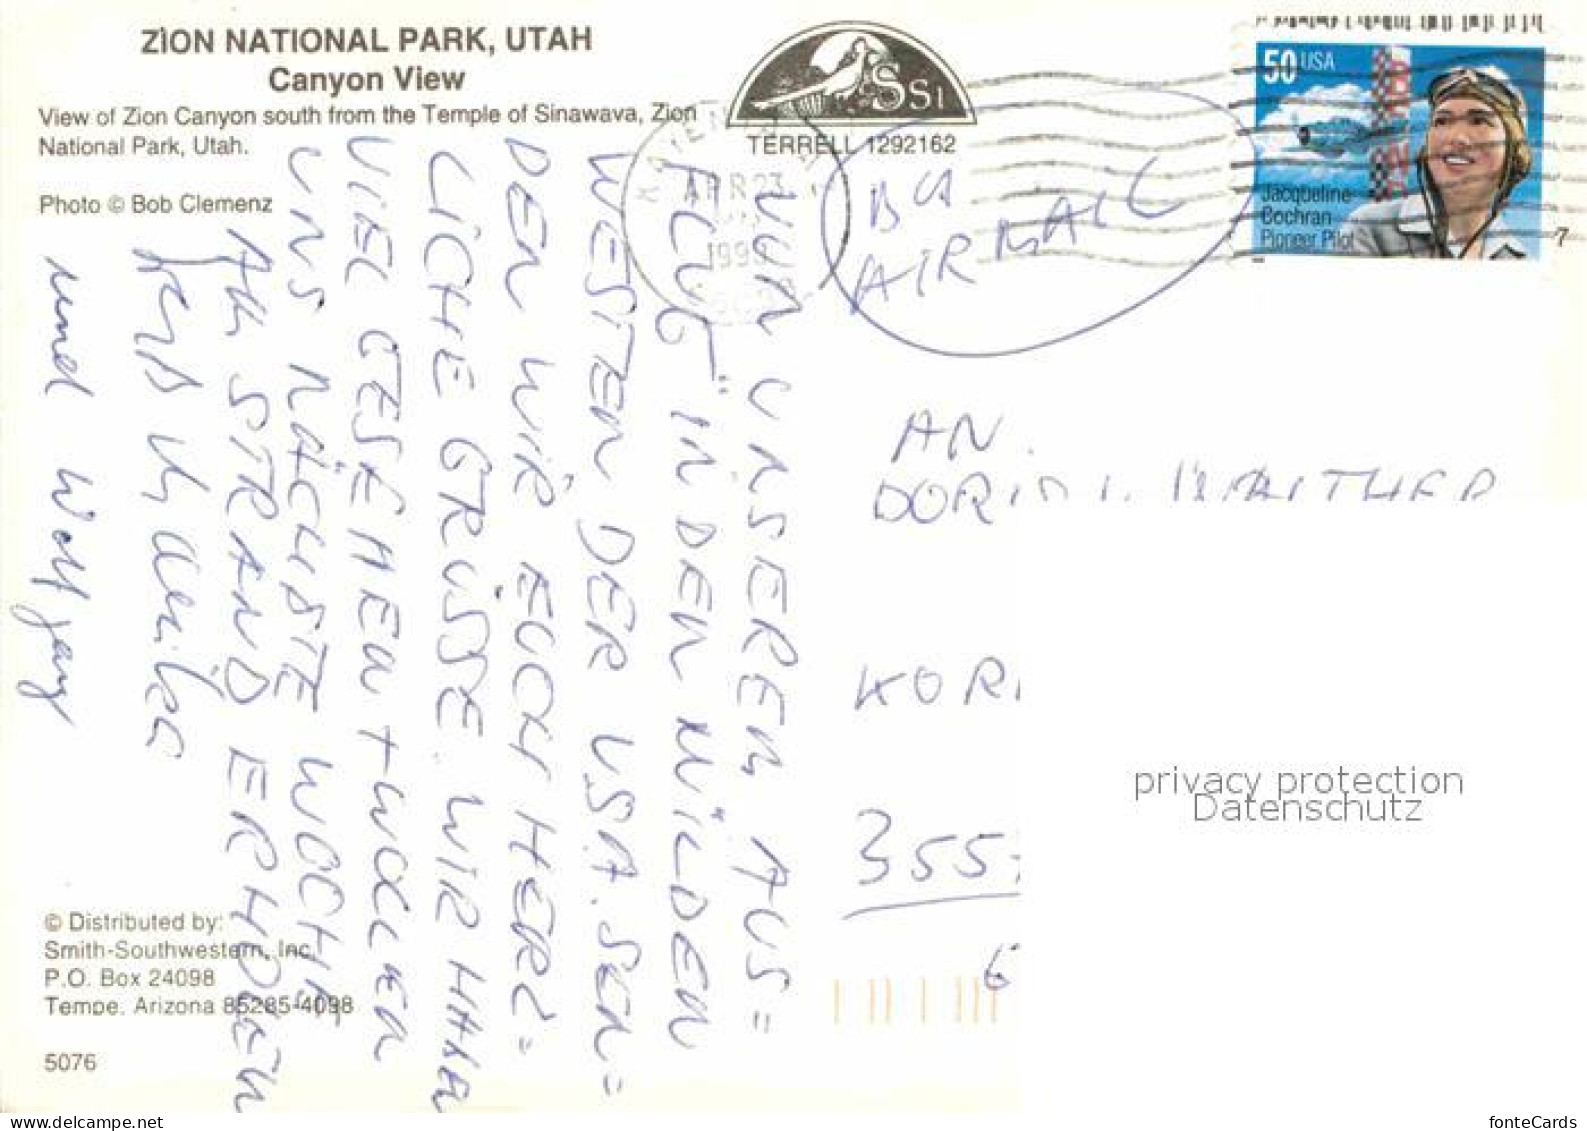 ZION NATIONAL PARK, UTAH
Canyon View
View of Zion Canyon south from the Temple of Sinawava, Zion
National Park, Utah.
Photo © Bob Clemenz
SSI
TERRELL 1292162
APR 23
50 USA
Jacqueline
Cochran
Pioneer Pilot
BY
AIRMAIL
AN
KOR
355
6
VON UNSEREM AUS=
FLUG IN DEN WILDEN
WESTEN DER USA. SEN=
DEN WIR EUCH HERZ=
LICHE GRÜSSE. WIR HABEN
VIEL GESEHEN + WOLLEN
UNS NÄCHSTE WOCHE
AM STRAND ERHOLEN
und Wolfgang
© Distributed by:
Smith-Southwestern, Inc.
P.O. Box 24098
Tempe, Arizona 85285-4098
5076
privacy protection
Datenschutz
delcampe.net
fonteCards